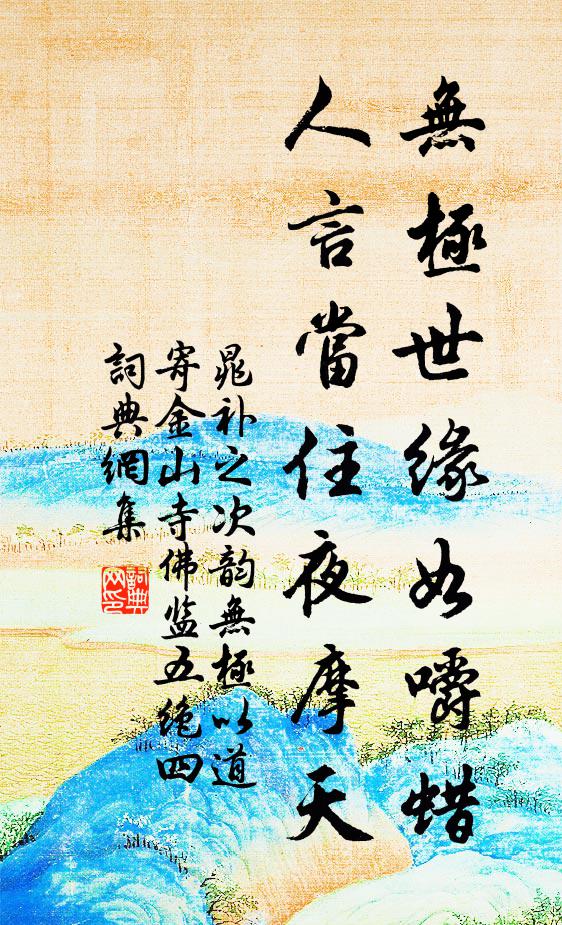 無極世缘如嚼蜡
人言當住夜摩天
晁补之次韵無極以道
寄金山寺佛监五绝四
詞典網集
詞典网印